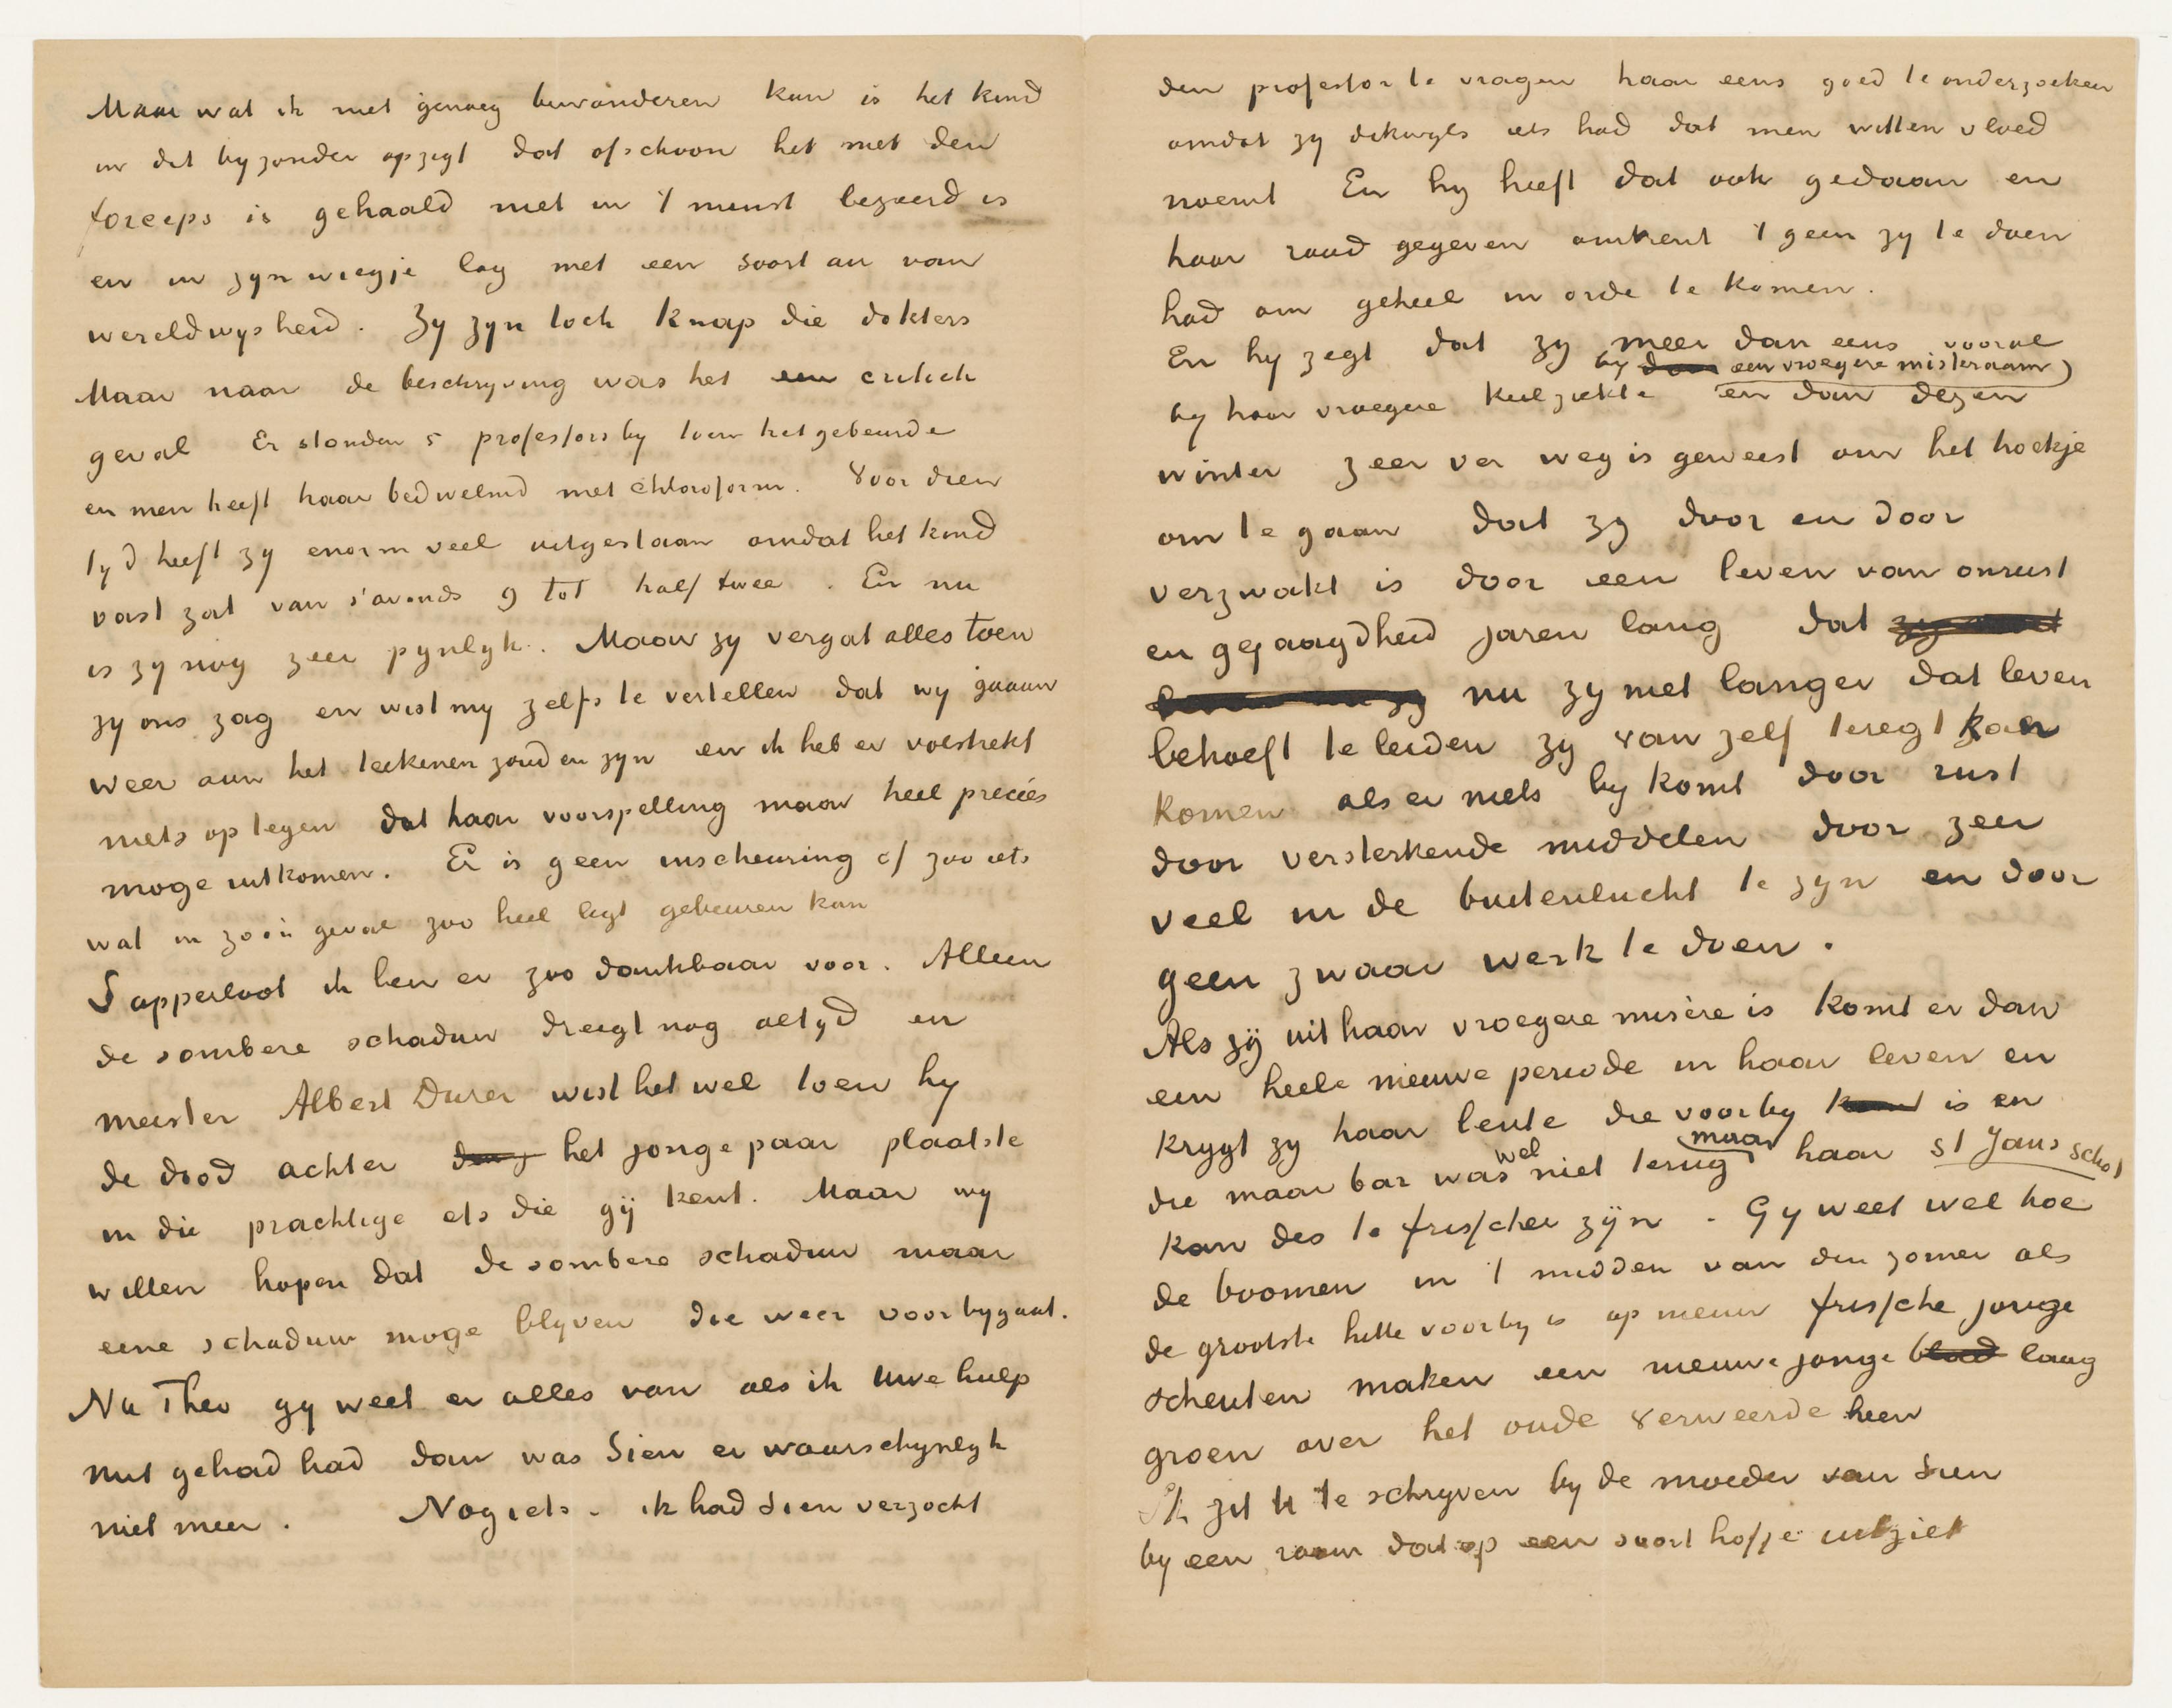 Maar wat ik niet genoeg bewonderen kan is het kind
in dit byzonder opzigt dat ofschoon het met den
forceps is gehaald niet in 't minst bezeerd is
en in zyn wiegje lag met een soort air van
wereldwysheid. Zy zyn toch knap die dokters
Maar naar de beschryving was het een critiek
geval Er stonden 5 professors by toen het gebeurde
en men heeft haar bedwelmd met chloroform. Voor dien
tyd heeft zy enorm veel uitgestaan omdat het kind
vast zat van s'avonds 9 tot half twee. En nu
is zy nog zeer pynlyk. Maar zy vergat alles toen
zy ons zag en wist my zelfs te vertellen dat wy gaauw
weer aan het teekenen zouden zyn en ik heb er volstrekt
niets op tegen dat haar voorspelling maar heel preciés
moge uitkomen. Er is geen inscheuring of zoo iets
wat in zoo'n geval zoo heel ligt gebeuren kan
Sapperloot ik ben er zoo dankbaar voor. Alleen
de sombere schaduw dreigt nog altyd en
meester Albert Durer wist het wel toen hy
de dood achter het jonge paar plaatste
in die prachtige ets die gij kent. Maar wy
willen hopen dat de sombere schaduw maar
eene schaduw moge blyven die weer voorbygaat.
Nu Theo gy weet er alles van als ik uwe hulp
niet gehad had dan was Sien er waarschynlyk
niet meer. Nog iets. ik had Sien verzocht
den professor te vragen haar eens goed te onderzoeken
omdat zy dikwyls iets had dat men witten vloed
noemt En hy heeft dat ook gedaan en
haar raad gegeven omtrent 't geen zy te doen
had om geheel in orde te komen.
En hy zegt dat zy meer dan eens vooral
by een vroegere miskraam
by haar vroegere keelziekte en dan dezen
winter zeer ver weg is geweest om het hoekje
om te gaan dat zy door en door
verzwakt is door een leven van onrust
en gejaagdheid jaren lang dat
nu zy niet langer dat leven
behoeft te leiden zy van zelf teregt kan
komen als er niets by komt door rust
door versterkende middelen door zeer
veel in de buitenlucht te zyn en door
geen zwaar werk te doen.
Als zij uit haar vroegere misère is komt er dan
een heele nieuwe periode in haar leven en
krygt zy haar lente die voorby is en
wel maar
die maar bar was niet terug haar St Jans schot
kan des te frisscher zijn. Gy weet wel hoe
de boomen in 't midden van den zomer als
de grootste hitte voorby is op nieuw frissche jonge
scheuten maken een nieuwe jonge laag
groen over het oude verweerde heen
Ik zit U te schryven by de moeder van Sien
by een raam dat op een soort hofje uitziet